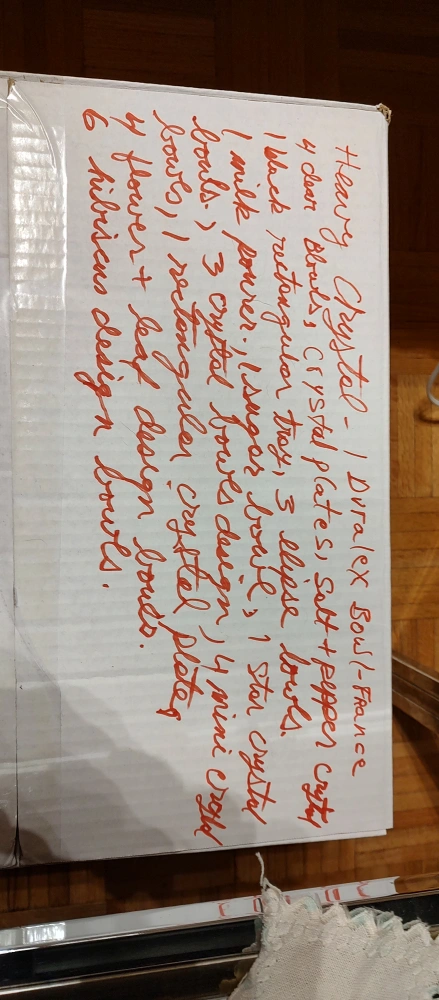 Heavy Crystal - 1 Duralex Bowl - France
4 clear Bowls, Crystal plates, Salt + pepper crytal
1 black rectangular tray, 3 ellipse bowls.
1 milk pourer, 1 sugar bowl, 1 Star crystal
bowls, 3 crytal bowls design, 4 mini crytal
bowls, 1 rectangular crystal plate,
4 flower + leaf design bowls.
6 hibiscus design bowls.